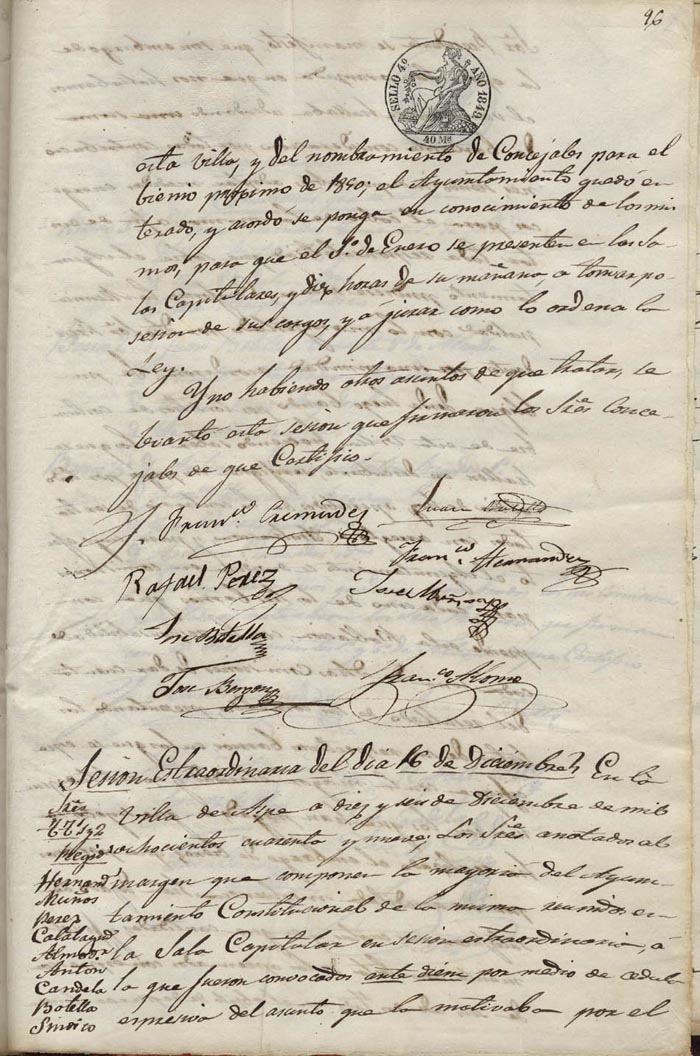 96
SELLO 4º AÑO 1849.
40 Ms
esta Villa, y del nombramiento de Concejales para el
bienio proximo de 1850; el Ayuntamiento quedó en
terado, y acordó se ponga en conocimiento de los mis
mos, para que el 1º de Enero se presenten en las Sa-
las Capitulares, y diez horas de su mañana, a tomar po-
sesion de sus cargos, y a jurar como lo ordena la
Ley.
Y no habiendo otros asuntos de que tratar, se
levantó esta sesion que firmaron los Sres Conce-
jales de que Certifico.
Franco Cremades
Juan
Franco Hernandez
Rafael Perez
Jose Muñoz
Jose Botella
Jose
Franco Alome
Sesion Extraordinaria del dia 16 de Diciembre En la
Sres
TTs 1 y 2
Villa de Aspe a diez y seis de Diciembre de mil
Regids
ochocientos cuarenta y nueve; Los Sres anotados al
Hernandz
margen que componen la mayoria del Ayun-
Muños
Perez
tamiento Constitucional de la misma reunidos en
Calatayud
Almodor
la Sala Capitular en sesion extraordinaria, a
Anton
Candela
la que fueron convocados ante diem por medio de cedula
Botella
Sindico
espresiva del asunto que la motivaba por el